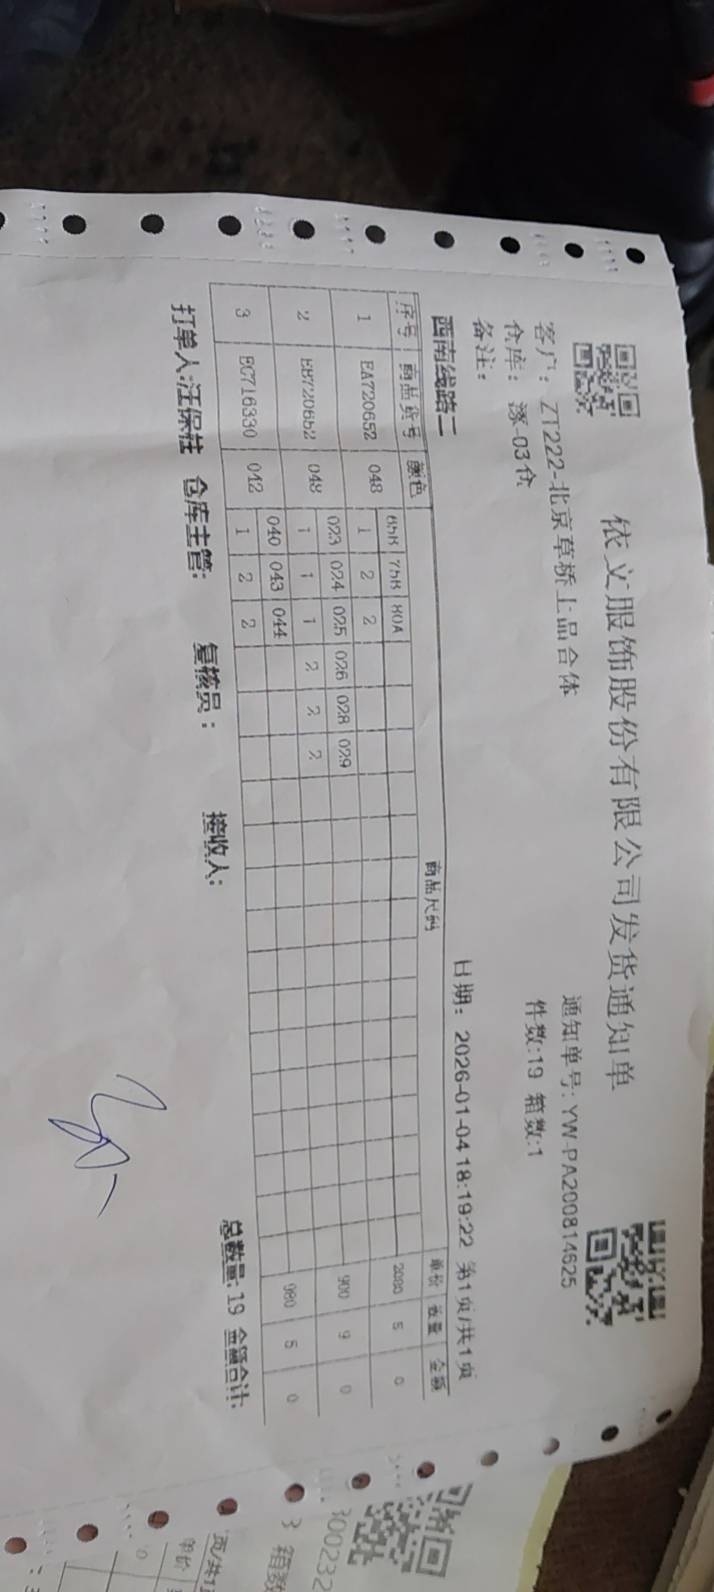 依文服饰股份有限公司发货通知单
客户：ZT222-北京草桥上品合体
通知单号:YW-PA200814625
仓库：涿-03仓
件数:19 箱数:1
备注：
西南线路二
日期：2026-01-04 18:19:22 第1页/共1页
序号 商品货号 颜色 商品尺码 单价 数量 金额
65B 75B 80A
1 EA720652 048 1 2 2 2080 5 0
023 024 025 026 028 029
2 EB720652 048 1 1 1 2 2 2 900 9 0
040 043 044
3 EC716330 042 1 2 2 980 5 0
打单人:汪保柱 仓库主管: 复核员： 接收人: 总数量:19 金额合计:
300232
3 箱数
页/共1
单价